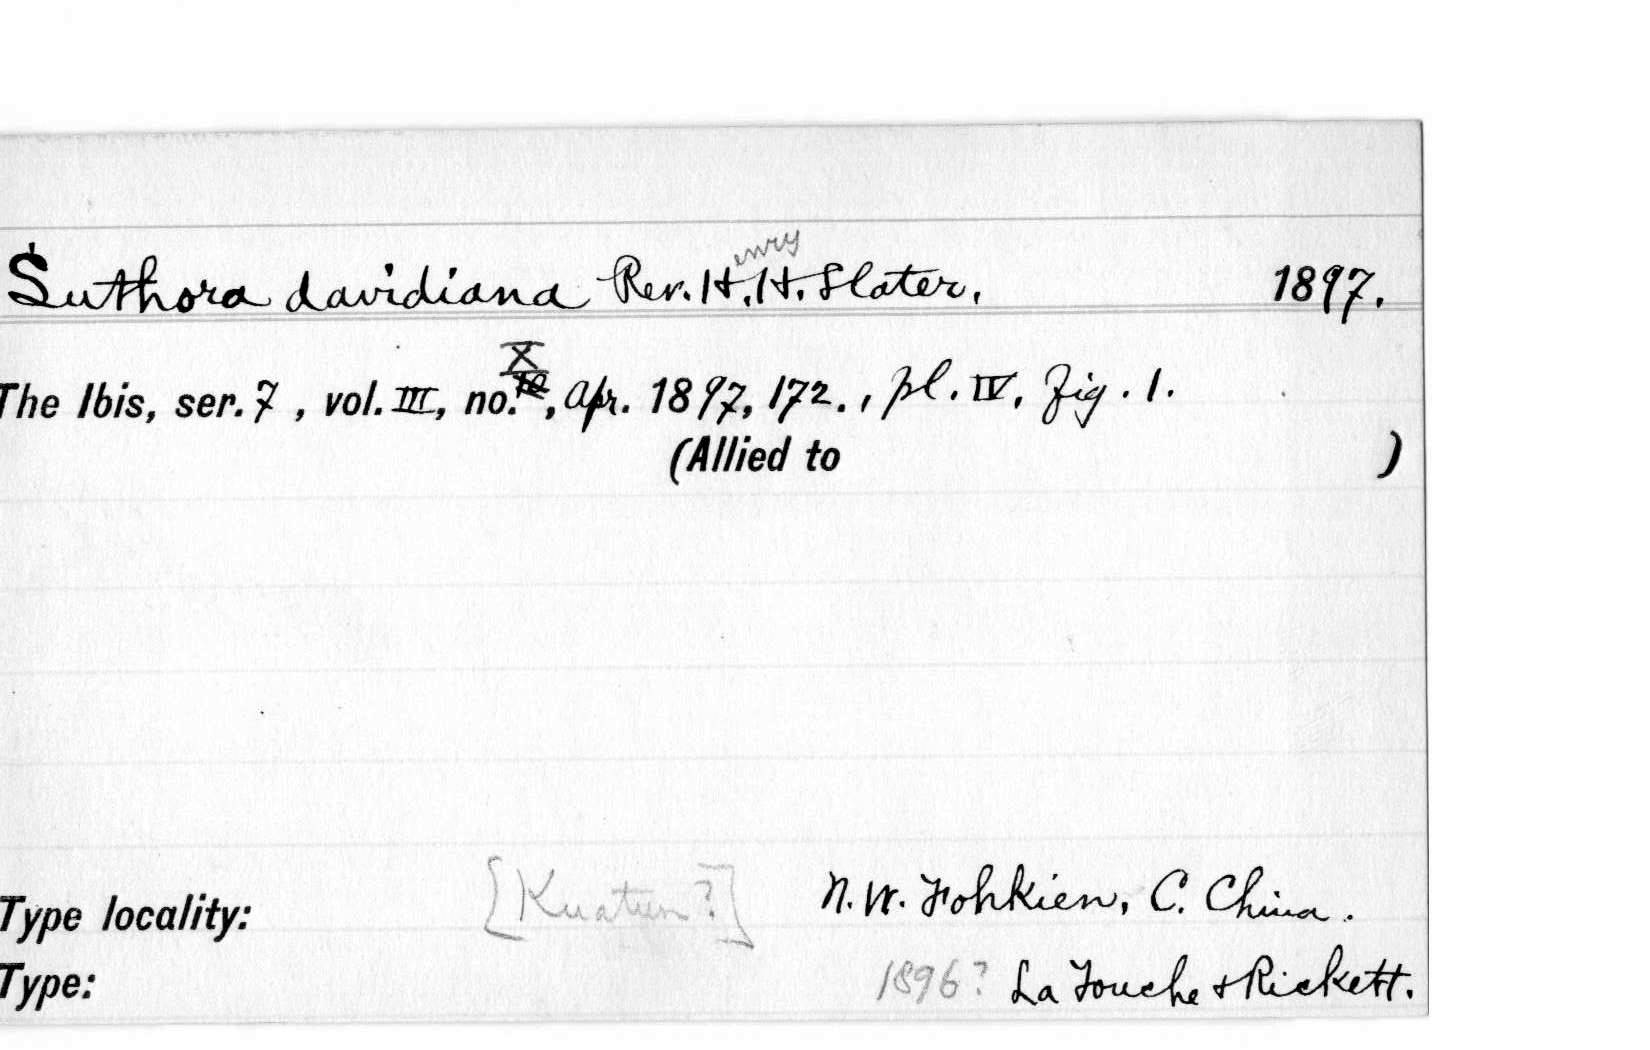 Suthora davidiana Rev. H.enry H. Slater. 1897.
The Ibis, ser. 7, vol. III, no. X, Apr. 1897, 172., pl. IV, fig. 1.
(Allied to )
Type locality: [Kuatun?] N.W. Fohkien, C. China.
Type: 1896? La Touche & Rickett.